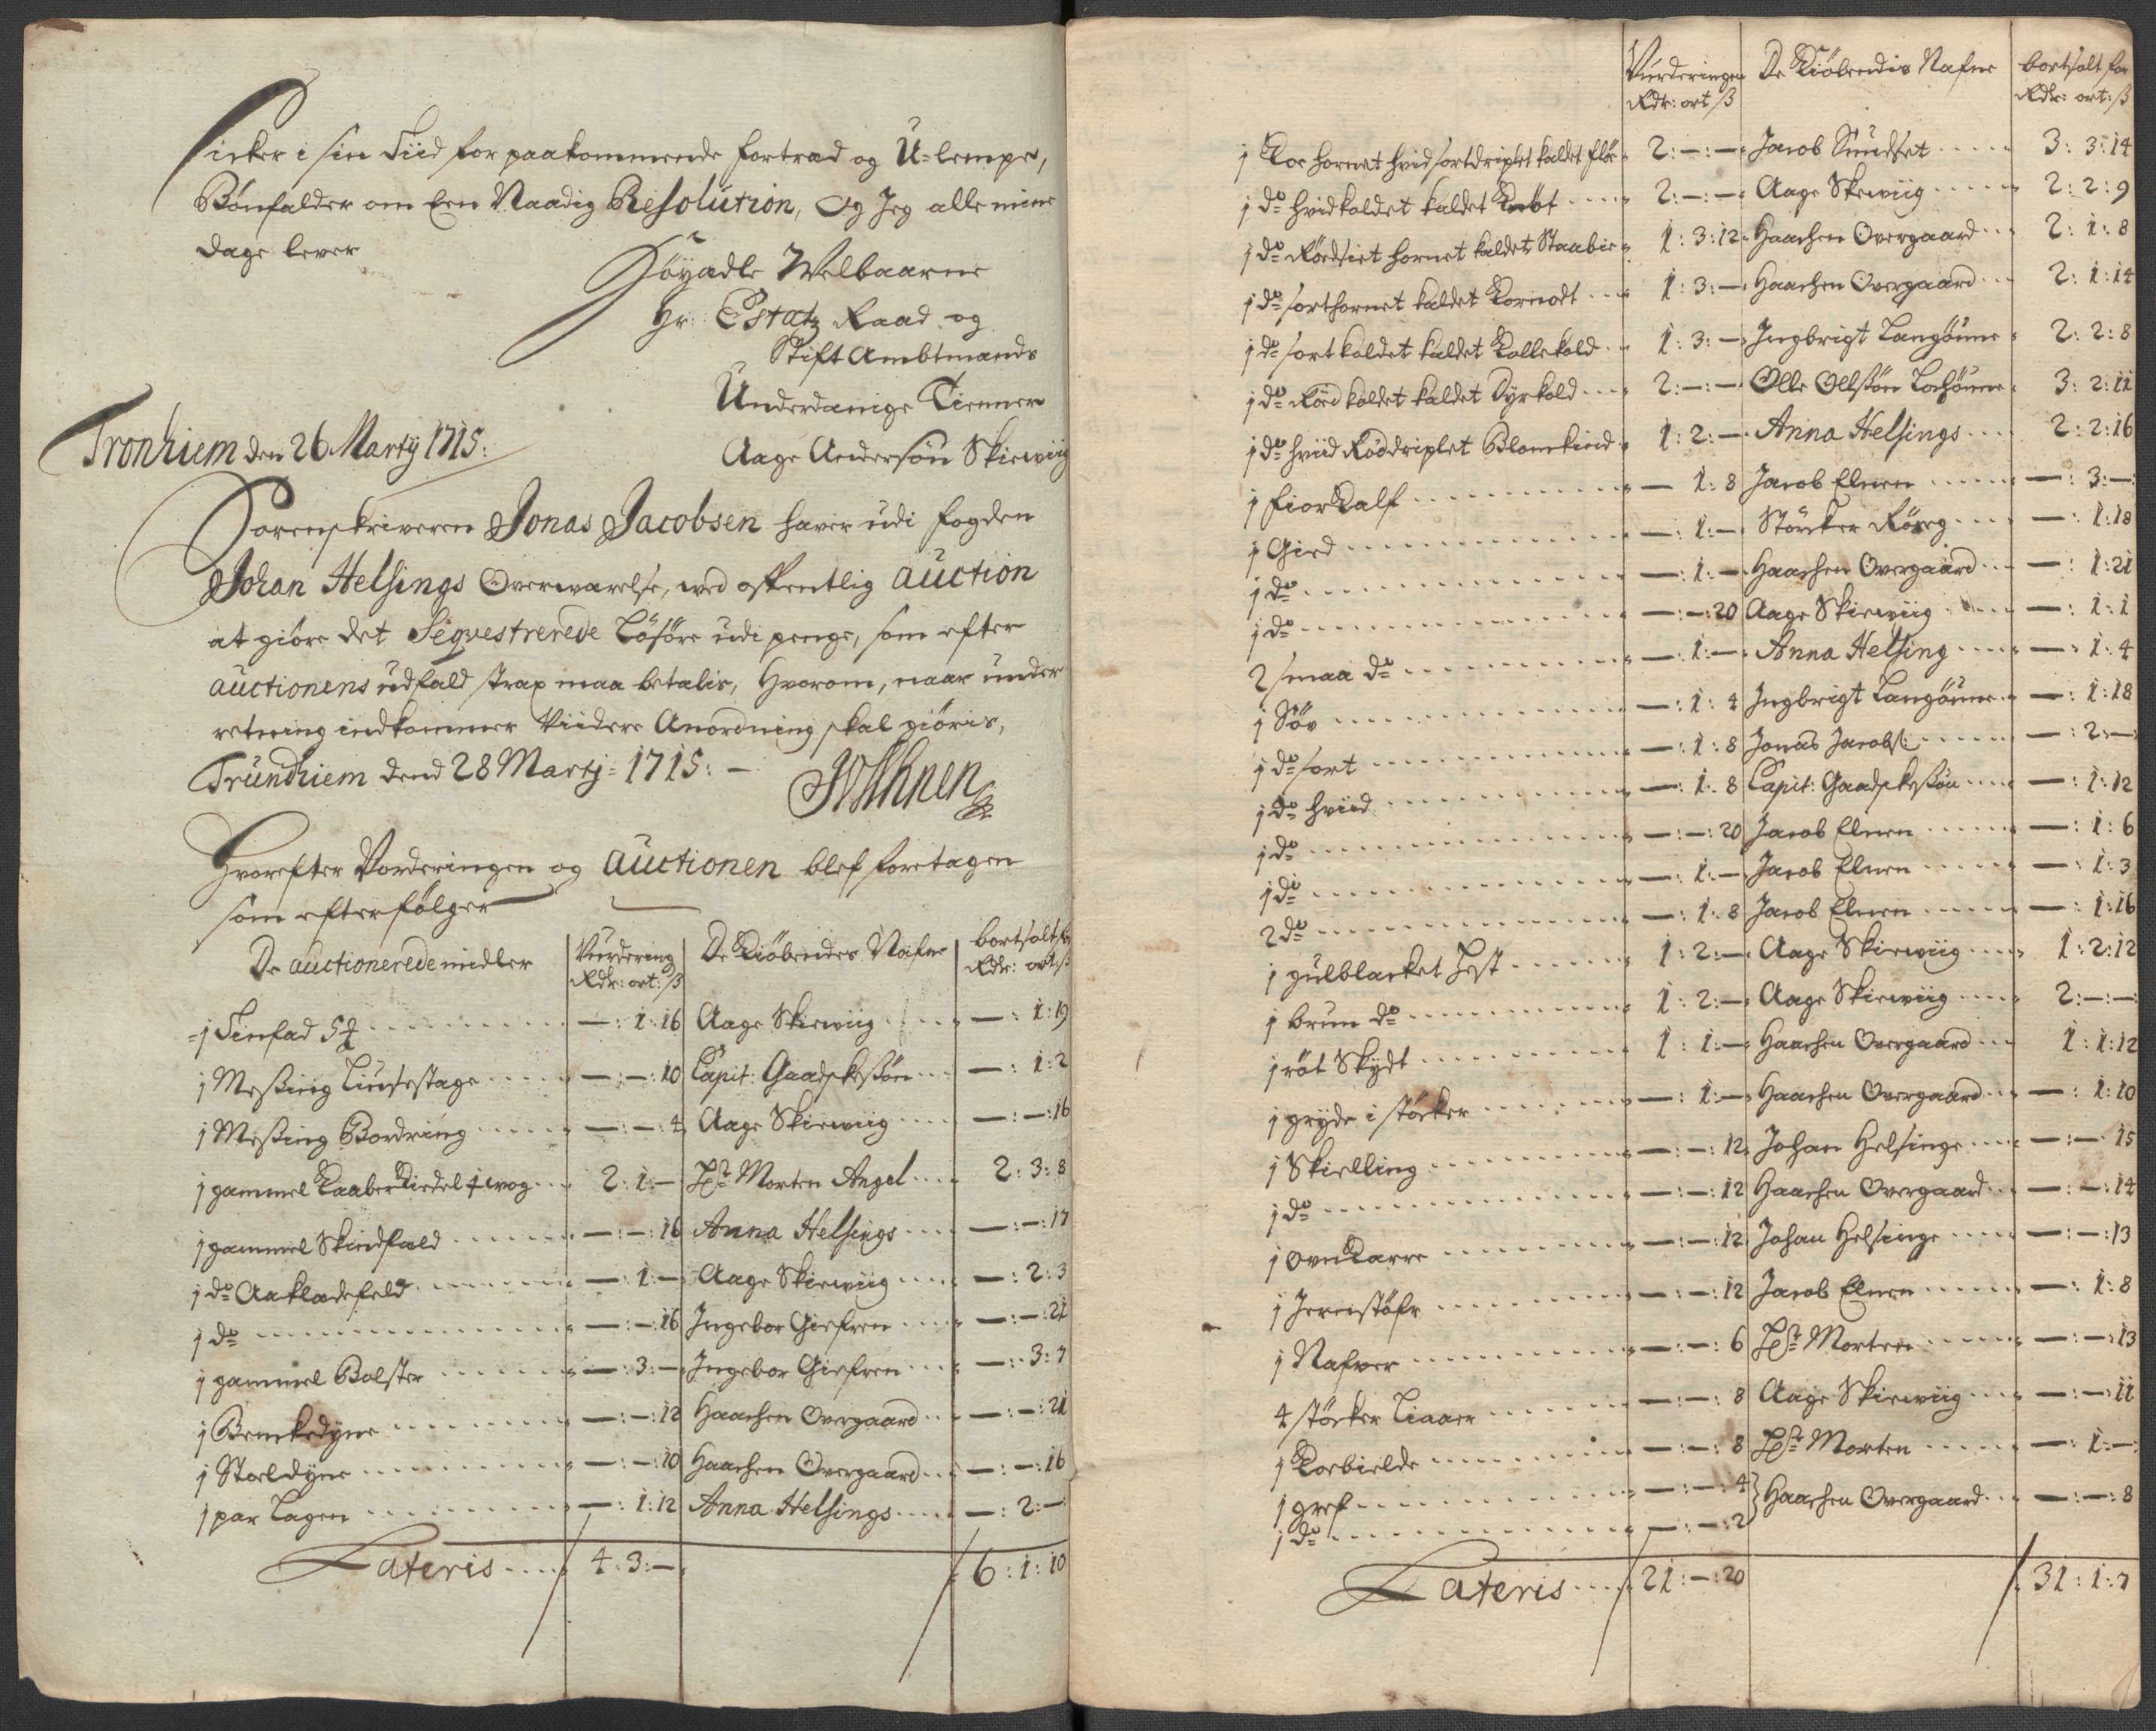 sicker i sin Tiid for paakommende fortræd og U-lempe,
Bönfalder om Een Naadig Resolution, og Jeg alle mine
dage lever
Höyædle Welbaarne
Hr: Estatz Raad og
Stift Ambtmands
Underdanige Tienner
Tronhiem den 26 Martij 1715:
Aage Andersön Skiewiig
Sorenskriveren Jonas Jacobsen haver udi fogden
Johan Helsings Overværelse, ved offentlig auction
at giöre det Seqvestrerede Lösöre udi penge, som efter
auctionens udfald strax maa betalis, Hvorom, naar under
retning indkommer Viidere Anordning skal giöris,
Trundhiem dend 28 Martj: 1715: —
Hvorefter Vorderingen og auctionen blef foretagen
som efterfölger
De auctionerede midler | Vurdering | De Kiöbendes Nafne | bortsolt for
Rdr: ort: ß | Rdr: ort: ß
1 Tinfad 5 ℔ | —: 1: 16 | Aage Skiewiig | —: 1: 19
1 Messing Liusestage | —: —: 10 | Capit: Gaadskessön | —: 1: 2
1 Messing Bordring | —: —: 4 | Aage Skiewiig | —: —: 16
1 gammel Kaaber Kiedel 1 wog | 2: 1: — | Hr Morten Angel | 2: 3: 8
1 gammel Skindfæld | —: —: 16 | Anna Helsings | —: —: 17
1 do Aakladefeld | —: 1: — | Aage Skiewiig | —: 2: 3
1 do | —: —: 16 | Ingebor Giefren | —: —: 21
1 gammel Bolster | —: 3: — | Ingebor Giefren | —: 3: 7
1 Benckedyne | —: —: 12 | Haachen Overgaard | —: —: 21
1 Stoeldyne | —: —: 10 | Haachen Overgaard | —: —: 16
1 par Lagen | —: 1: 12 | Anna Helsings | —: 2: —
Lateris | 4: 3: — | 6: 1: 10
Vurderingen | De Kiöbendis Nafne | bortsolt for
Rdr: ort ß | Rdr: ort: ß
1 Koe hornet hvid sortdriplet kaldet | 2: —: — | Jacob | 3: 3: 14
1 do hvidkoldet kaldet | 2: —: — | Aage Skewiig | 2: 2: 9
1 do Rödsiet hornet kaldet Staabie | 1: 3: 12 | Haachen Overgaard | 2: 1: 8
1 do sorthornet kaldet | 1: 3: — | Haachen Overgaard | 2: 1: 14
1 do sortkoldet kaldet Kollekold | 1: 3: — | Ingbrigt Langörne | 2: 2: 8
1 do Rödkoldet kaldet Dyrkold | 2: —: — | Olle Olssön | 3: 2: 11
1 do hviid Röddriplet Blomkind | 1: 2: — | Anna Helsings | 2: 2: 16
1 fior Kalf | — 1: 8 | Jacob Elnen | —: 3: —
1 Gied | —: 1: — | Störcker | —: 1: 18
1 do | —: 1: — | Haachen Overgaard | —: 1: 21
1 do | —: —: 20 | Aage Skiewiig | —: 1: 1
2 smaa do | —: 1: — | Anna Helsing | —: 1: 4
1 Söv | —: 1: 4 | Ingbrigt Langörne | —: 1: 18
1 do sort | —: 1: 8 | Jonas Jacobs: | —: 2: —
1 do hviid | —: 1: 8 | Capit: Gaadskessön | —: 1: 12
1 do | —: —: 20 | Jacob Elnen | —: 1: 6
1 do | —: 1: — | Jacob Elnen | —: 1: 3
2 do | —: 1: 8 | Jacob Elnen | —: 1: 16
1 gulblacket Hest | 1: 2: — | Aage Skiewiig | 1: 2: 12
1 brun do | 1: 2: — | Aage Skiewiig | 2: —: —
1 röt Skydt | 1: 1: — | Haachen Overgaard | 1: 1: 12
1 gryde i störcker | —: 1: — | Haachen Overgaard | —: 1: 10
1 Skielling | —: —: 12 | Johan Helsinge | —: —: 15
1 do | —: —: 12 | Haachen Overgaard | —: —: 14
1 | —: —: 12 | Johan Helsinge | —: —: 13
1 Jernstöfr | —: —: 12 | Jacob Elnen | —: 1: 8
1 Nafver | —: —: 6 | Hr Morten | —: —: 13
4 störcker Liaaer | —: —: 8 | Aage Skiewiig | —: —: 11
1 Koebielde | —: —: 8 | Hr Morten | —: 1: —
1 gref | —: —: 4 | Haachen Overgaard | —: —: 8
1 do | —: —: 2
Lateris | 21: —: 20 | 31: 1: 7